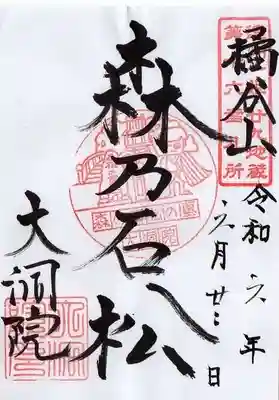 橘谷山
令和六年
六月廿二日
森乃石松
大洞院